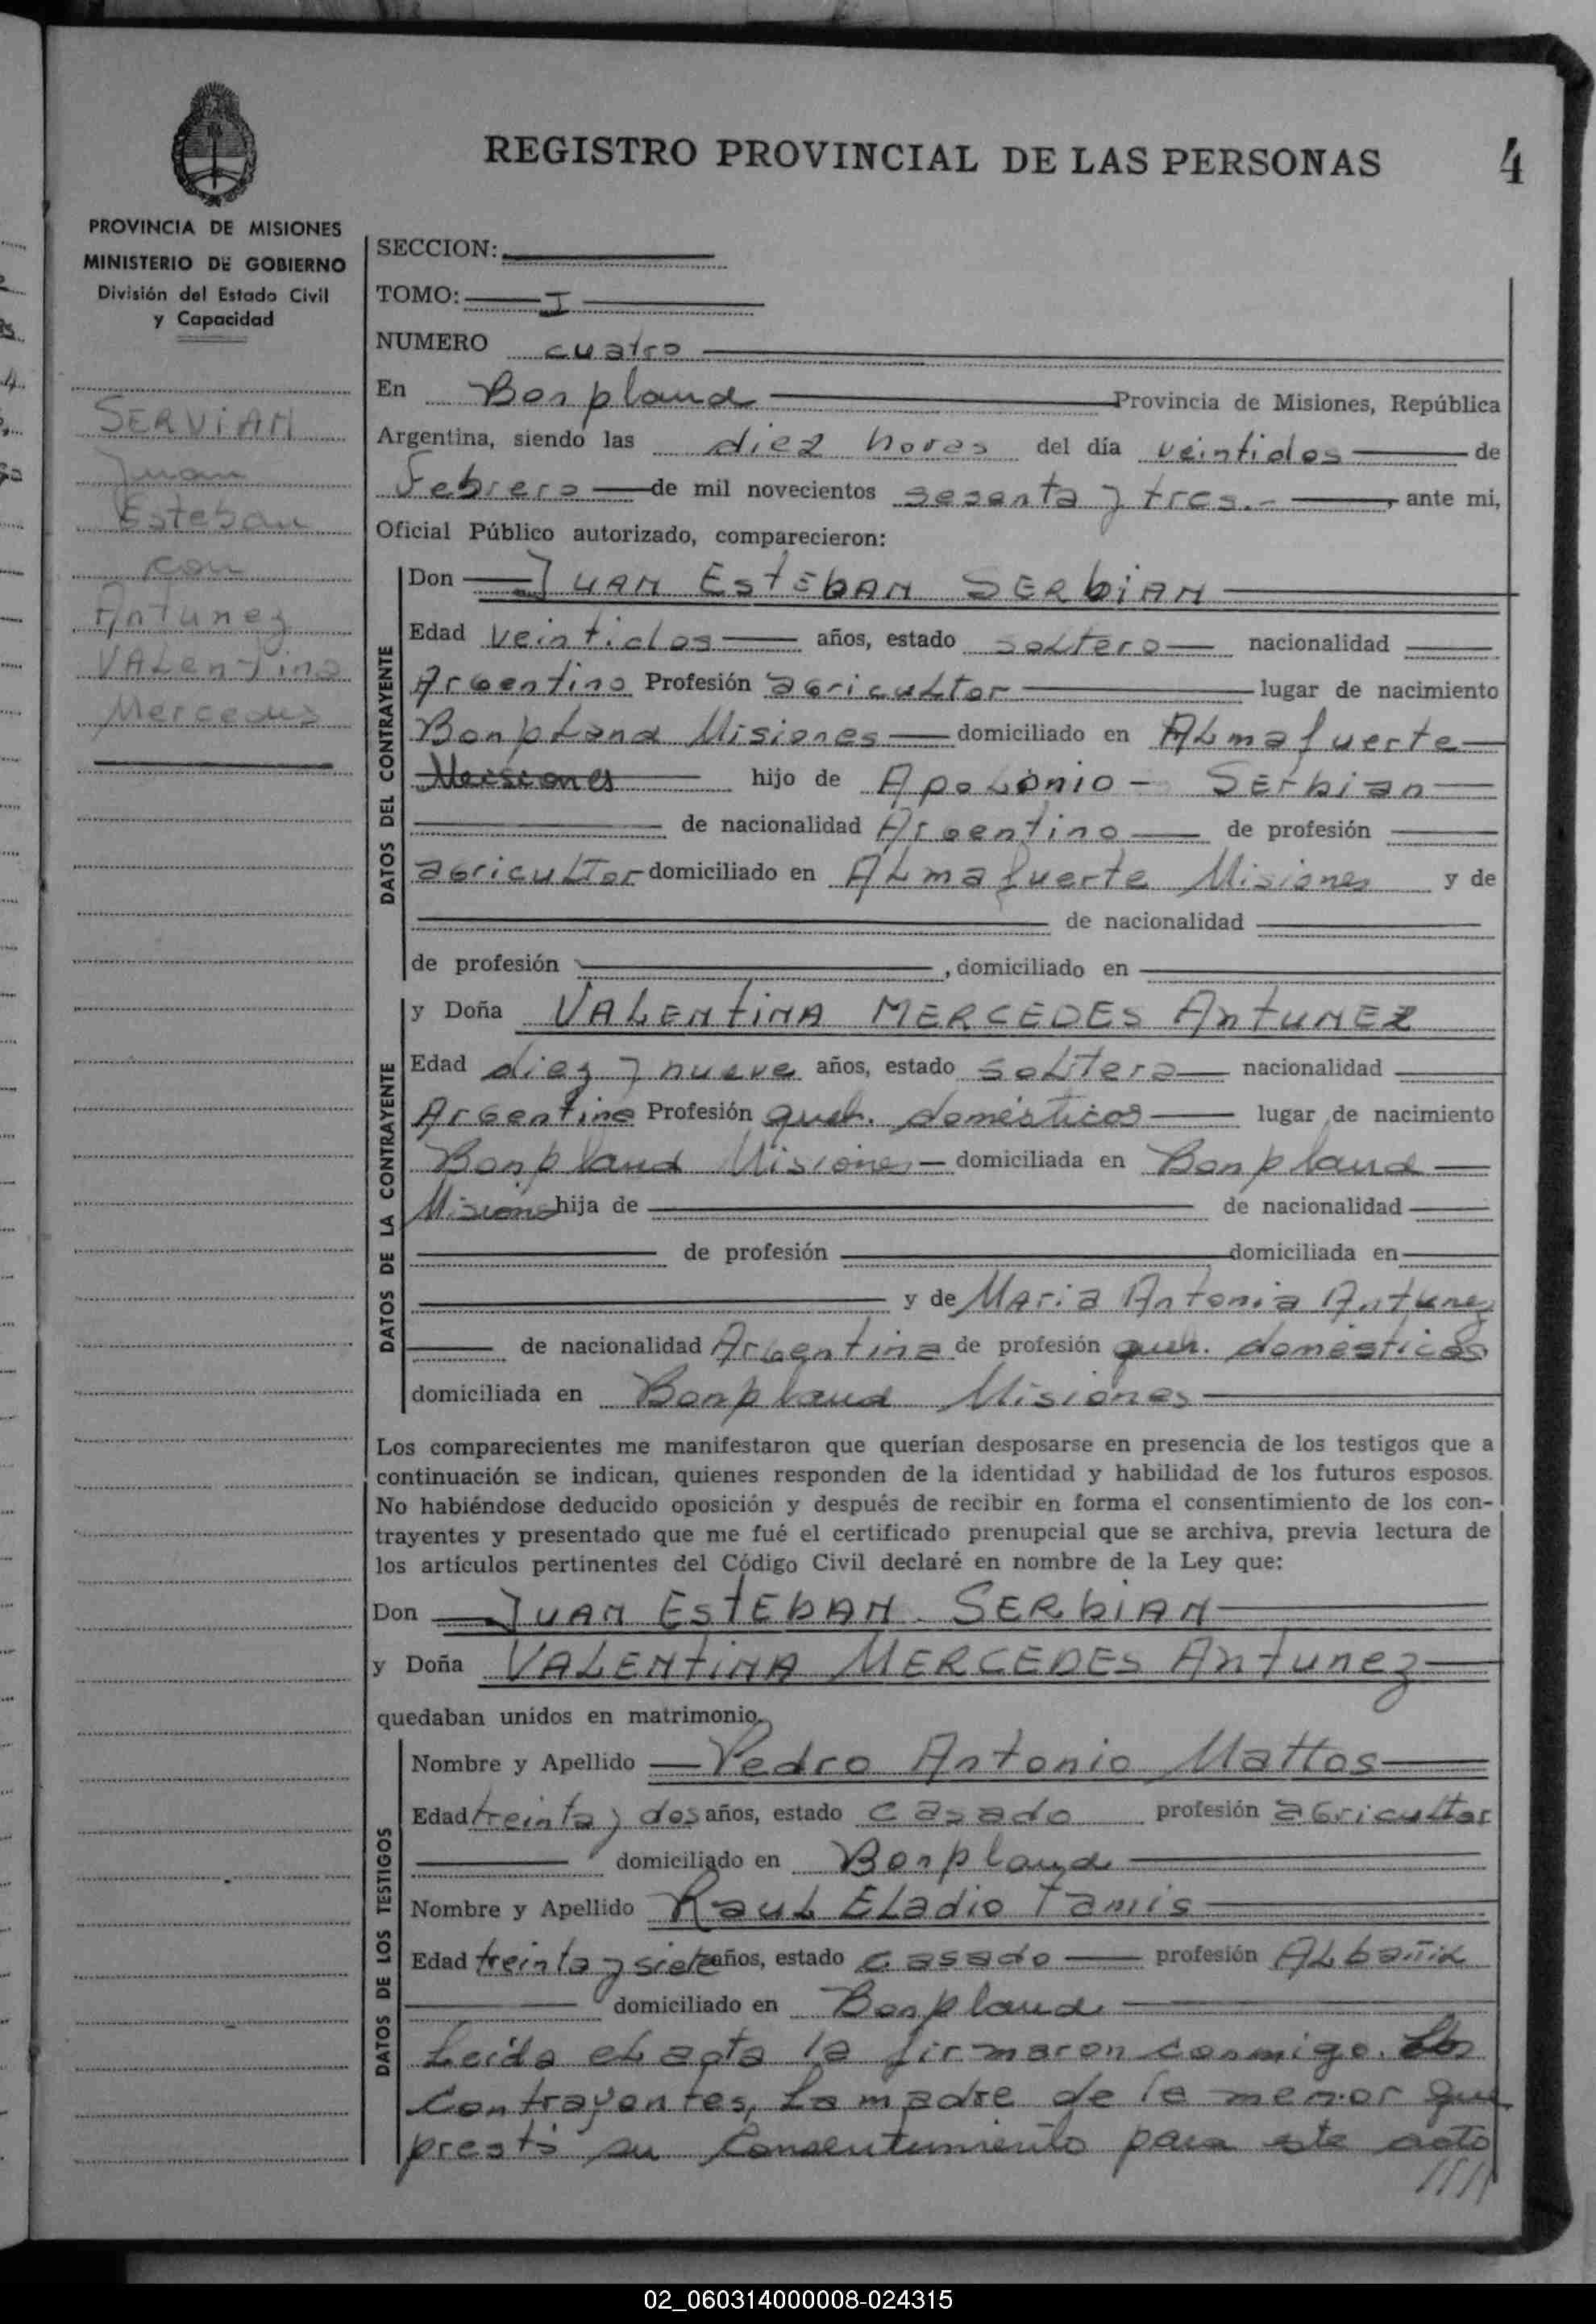 REGISTRO PROVINCIAL DE LAS PERSONAS
4
PROVINCIA DE MISIONES
MINISTERIO DE GOBIERNO
División del Estado Civil
y Capacidad
SERVIAN
Juan
Esteban
con
Antunez
VALentina
Mercedes
SECCION:
TOMO: I
NUMERO cuatro
En Bonpland Provincia de Misiones, República
Argentina, siendo las diez horas del día veintidos de
Febrero de mil novecientos sesenta y tres.- , ante mi,
Oficial Público autorizado, comparecieron:
DATOS DEL CONTRAYENTE
Don JUAN ESTEBAN SERBIAN
Edad veintidos años, estado soltero nacionalidad
Argentino Profesión agricultor lugar de nacimiento
Bonpland Misiones domiciliado en Almafuerte
Misiones hijo de Apolonio - Serbian
de nacionalidad Argentino de profesión
agricultor domiciliado en Almafuerte Misiones y de
de nacionalidad
de profesión , domiciliado en
DATOS DE LA CONTRAYENTE
y Doña VALENTINA MERCEDES ANTUNEZ
Edad diez y nueve años, estado soltera nacionalidad
Argentina Profesión queh. domésticos lugar de nacimiento
Bonpland Misiones domiciliada en Bonpland
Misiones hija de de nacionalidad
de profesión domiciliada en
y de Maria Antonia Antunez
de nacionalidad Argentina de profesión queh. domésticos
domiciliada en Bonpland Misiones
Los comparecientes me manifestaron que querían desposarse en presencia de los testigos que a
continuación se indican, quienes responden de la identidad y habilidad de los futuros esposos.
No habiéndose deducido oposición y después de recibir en forma el consentimiento de los con-
trayentes y presentado que me fué el certificado prenupcial que se archiva, previa lectura de
los artículos pertinentes del Código Civil declaré en nombre de la Ley que:
Don JUAN ESTEBAN SERBIAN
y Doña VALENTINA MERCEDES Antunez
quedaban unidos en matrimonio.
DATOS DE LOS TESTIGOS
Nombre y Apellido Pedro Antonio Mattos
Edad treinta y dos años, estado casado profesión agricultor
domiciliado en Bonpland
Nombre y Apellido Raul Eladio Tamis
Edad treinta y siete años, estado casado profesión Albañil
domiciliado en Bonpland
Leída el acta la firmaron conmigo. Los
contrayentes, la madre de la menor que
prestó su consentimiento para este acto
////
02_060314000008-024315